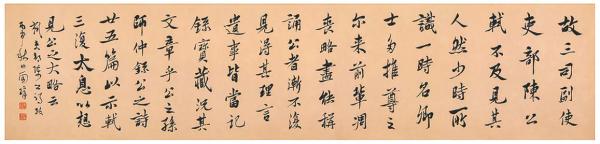 故三司副使
吏部陳公
軾不及見其
人然少時所
識一時名卿
士多推尊之
尔来前輩凋
喪略盡能稱
誦公者漸不復
見得其理言
遺事皆當記
録寶藏況其
文章乎公之孫
師仲録公之詩
廿五篇以示軾
三復太息以想
見公之大略云